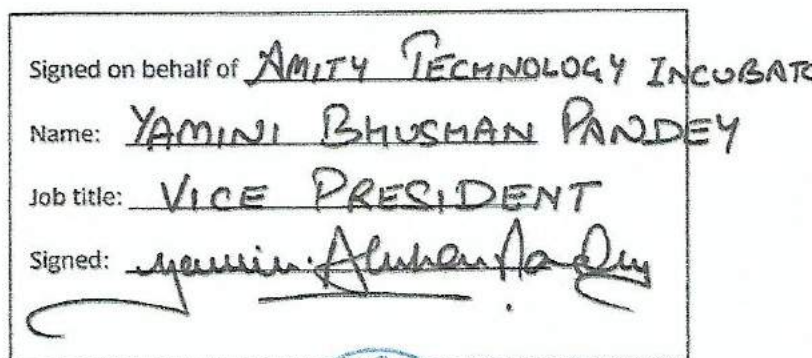 Signed on behalf of AMITY TECHNOLOGY INCUBATO
Name: YAMINI BHUSHAN PANDEY
Job title: VICE PRESIDENT
Signed: